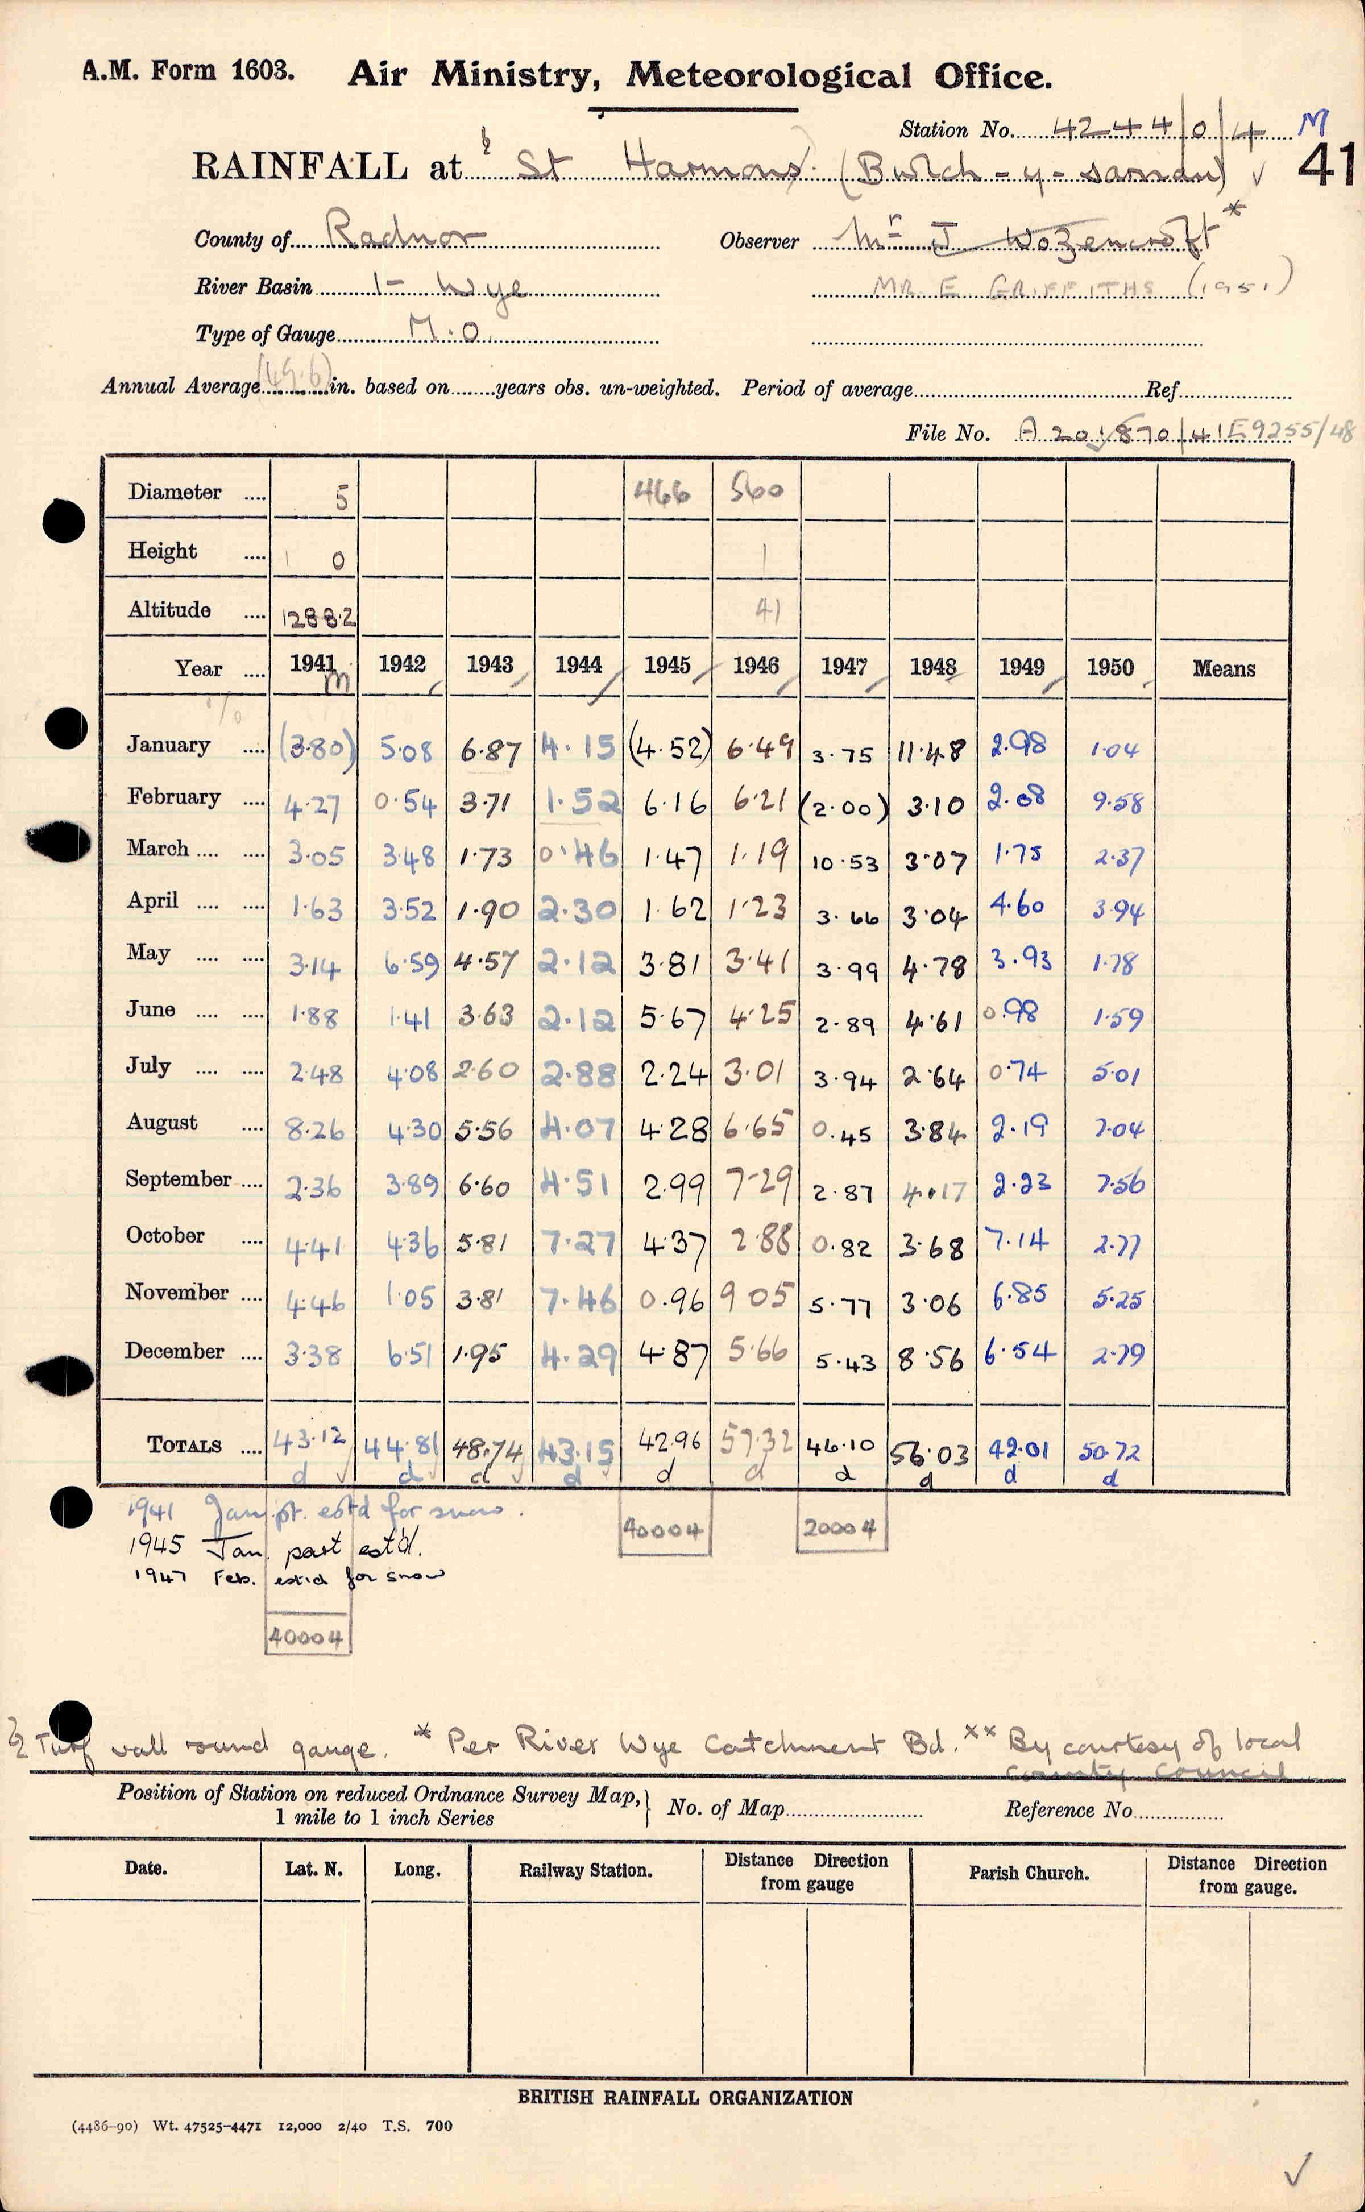 A.M. Form 1603. Air Ministry, Meteorological Office.
Station No. 4244/0/4 M
RAINFALL at St Harmons (Bwlch-y-sarnau) 41
County of Radnor Observer Mr J Wozencroft *
River Basin 1- Wye MR E GRIFFITHS (1951)
Type of Gauge M.O
Annual Average (49.6) in. based on years obs. un-weighted. Period of average Ref
File No. A 201870/41 E9255/48
Diameter 5 466 560
Height 0 1
Altitude 1288.2 41
Year 1941 1942 1943 1944 1945 1946 1947 1948 1949 1950 Means
m
January (3.80) 5.08 6.87 4.15 (4.52) 6.49 3.75 11.48 2.98 1.04
February 4.27 0.54 3.71 1.52 6.16 6.21 (2.00) 3.10 2.08 9.58
March 3.05 3.48 1.73 0.46 1.47 1.19 10.53 3.07 1.75 2.37
April 1.63 3.52 1.90 2.30 1.62 1.23 3.66 3.04 4.60 3.94
May 3.14 6.59 4.57 2.12 3.81 3.41 3.99 4.78 3.93 1.78
June 1.88 1.41 3.63 2.12 5.67 4.25 2.89 4.61 0.98 1.59
July 2.48 4.08 2.60 2.88 2.24 3.01 3.94 2.64 0.74 5.01
August 8.26 4.30 5.56 4.07 4.28 6.65 0.45 3.84 2.19 7.04
September 2.36 3.89 6.60 4.51 2.99 7.29 2.87 4.17 2.23 7.56
October 4.41 4.36 5.81 7.27 4.37 2.88 0.82 3.68 7.14 2.77
November 4.46 1.05 3.81 7.46 0.96 9 05 5.77 3.06 6.85 5.25
December 3.38 6.51 1.95 4.29 4.87 5.66 5.43 8.56 6.54 2.79
TOTALS 43.12 44.81 48.74 43.15 42.96 57.32 46.10 56.03 42.01 50.72
d d d d d d d d d d
1941 Jan pt. est'd for snow.
40004 20004
1945 Jan. part est'd.
1947 Feb. est'd for snow
40004
Turf wall round gauge. * Per River Wye Catchment Bd. ** By courtesy of local
county council
Position of Station on reduced Ordnance Survey Map, No. of Map Reference No
1 mile to 1 inch Series
Date. Lat. N. Long. Railway Station. Distance Direction from gauge Parish Church. Distance Direction from gauge.
BRITISH RAINFALL ORGANIZATION
(4486-90) Wt. 47525-4471 12,000 2/40 T.S. 700